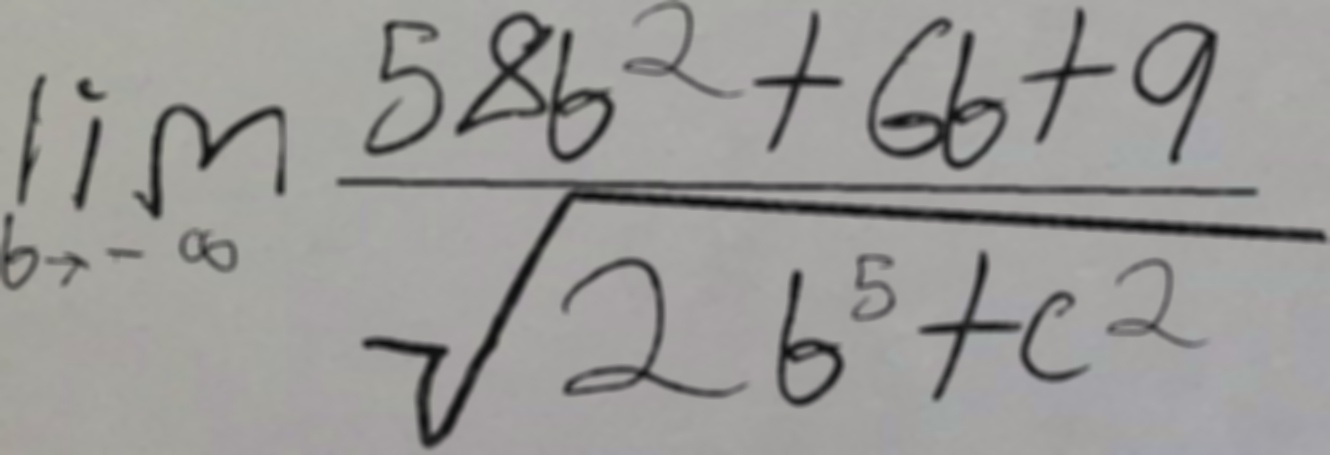 lim 58b² + 6b + 9
b → - ∞ √2b⁵ + c²